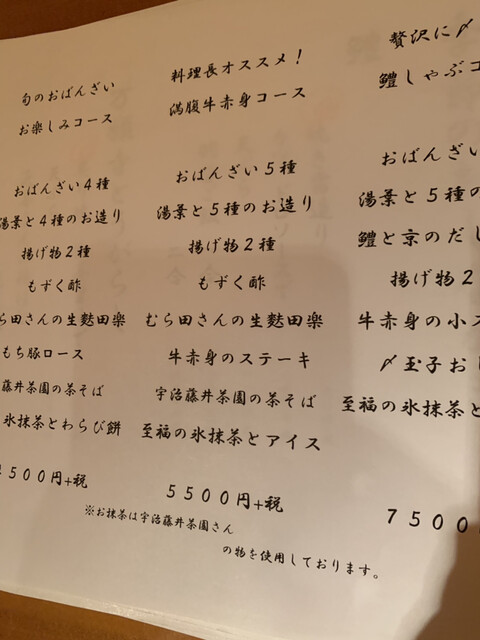 旬のおばんざい
お楽しみコース
おばんざい４種
湯葉と４種のお造り
揚げ物２種
もずく酢
ら田さんの生麩田楽
もち豚ロース
藤井茶園の茶そば
氷抹茶とわらび餅
５００円+税
料理長オススメ！
満腹牛赤身コース
おばんざい５種
湯葉と５種のお造り
揚げ物２種
もずく酢
むら田さんの生麩田楽
牛赤身のステーキ
宇治藤井茶園の茶そば
至福の氷抹茶とアイス
５５００円+税
贅沢に〆
鱧しゃぶコ
おばんざい
湯葉と５種の
鱧と京のだし
揚げ物２
牛赤身の小ス
〆玉子おじ
至福の氷抹茶と
７５００
※お抹茶は宇治藤井茶園さん
の物を使用しております。